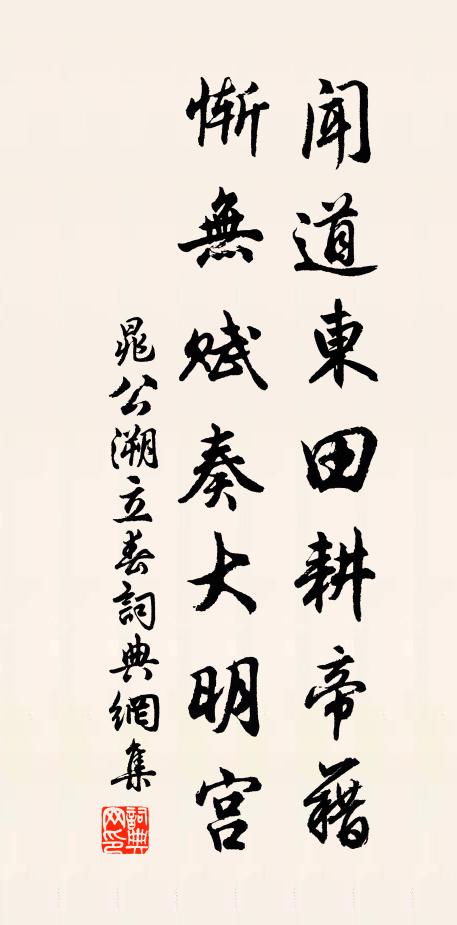 聞道東田耕帝藉
慚無賦奏大明宮
晁公溯立春詞典網集
詞典網印